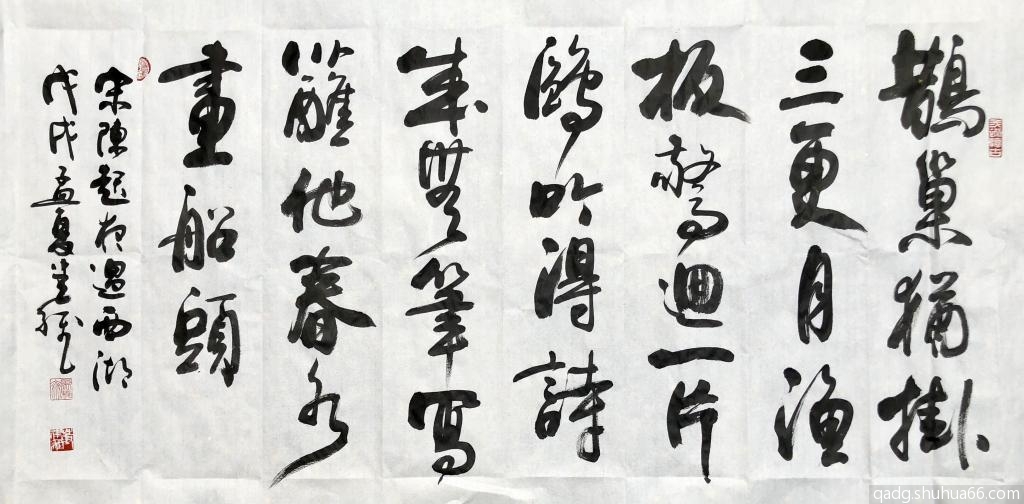 鵲巢猶掛
三更月漁
板驚迴一片
鷗吟得詩
成無筆寫
蘸他春水
畫船頭
宋陳起夜過西湖
戊戌孟夏
qadg.shuhua66.com